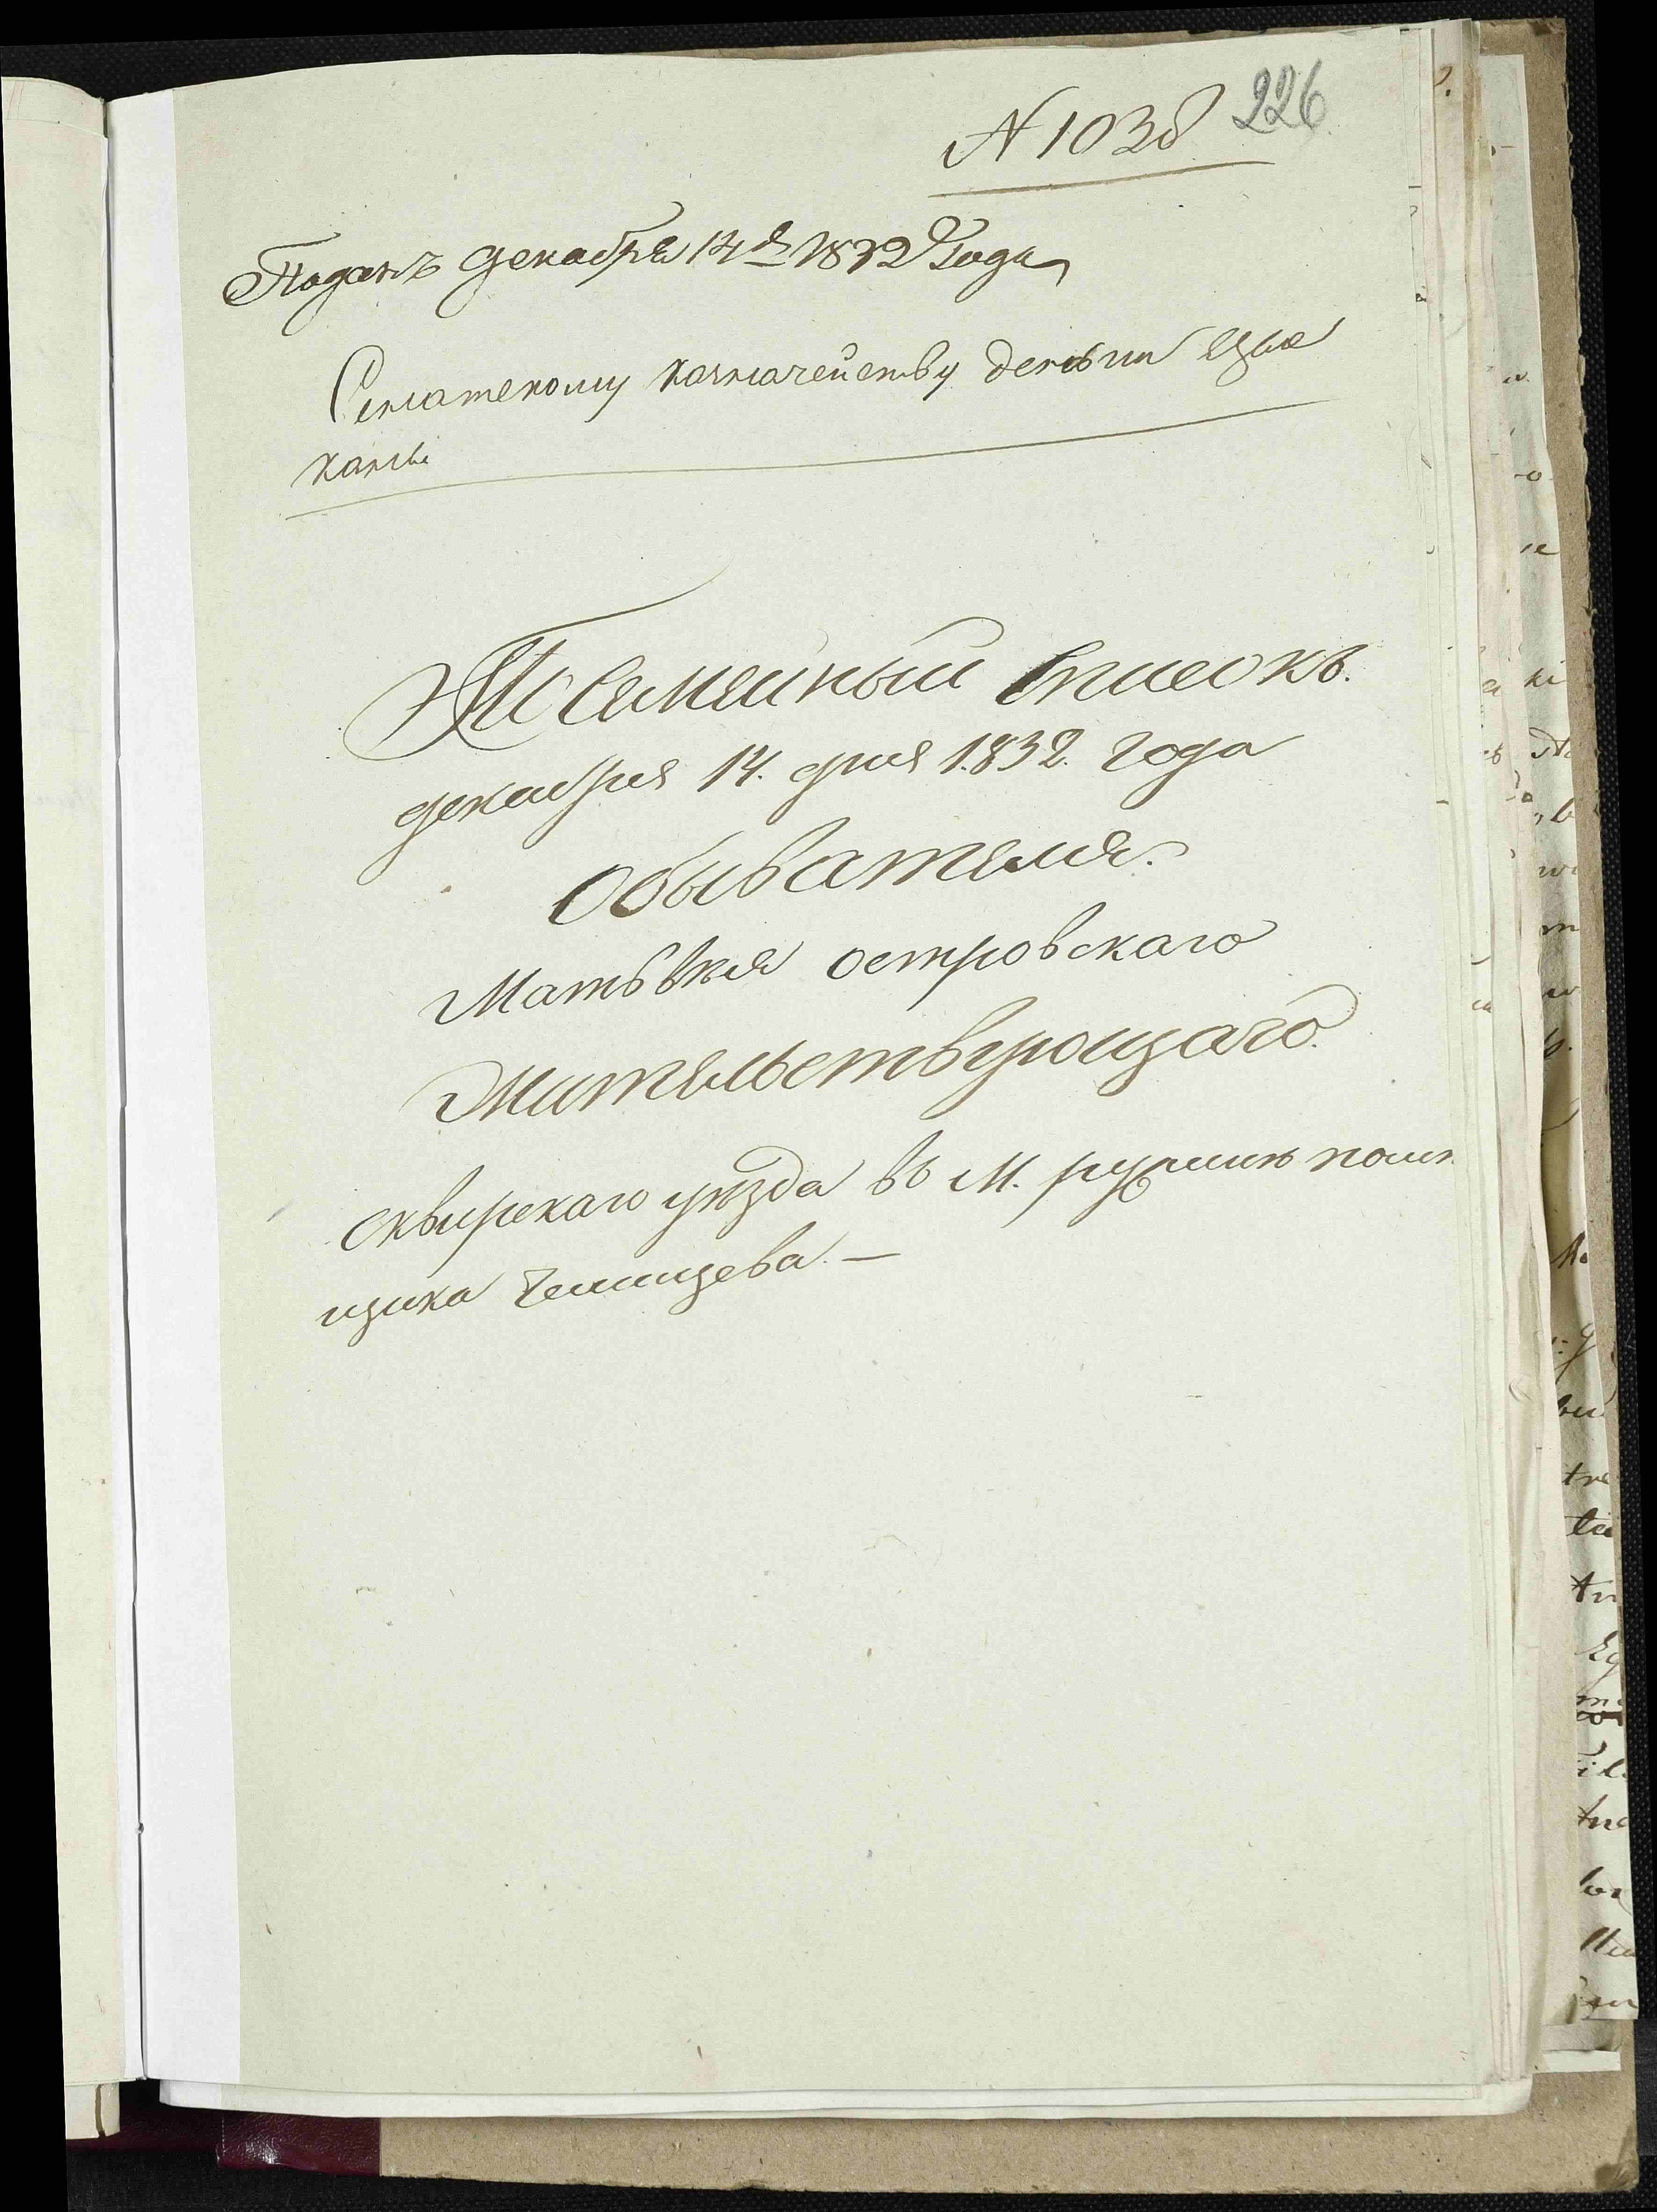 N 1038 226
Поданъ декабря 14 д 1832 Года
Сенатскому казначейству деньги
Посемейный списокъ.
декабря 14. дня 1832. года
Обывателя.
Матвѣя островскаго
Жительствующаго
сквирскаго уѣзда въ М. ружинѣ помѣ
щика